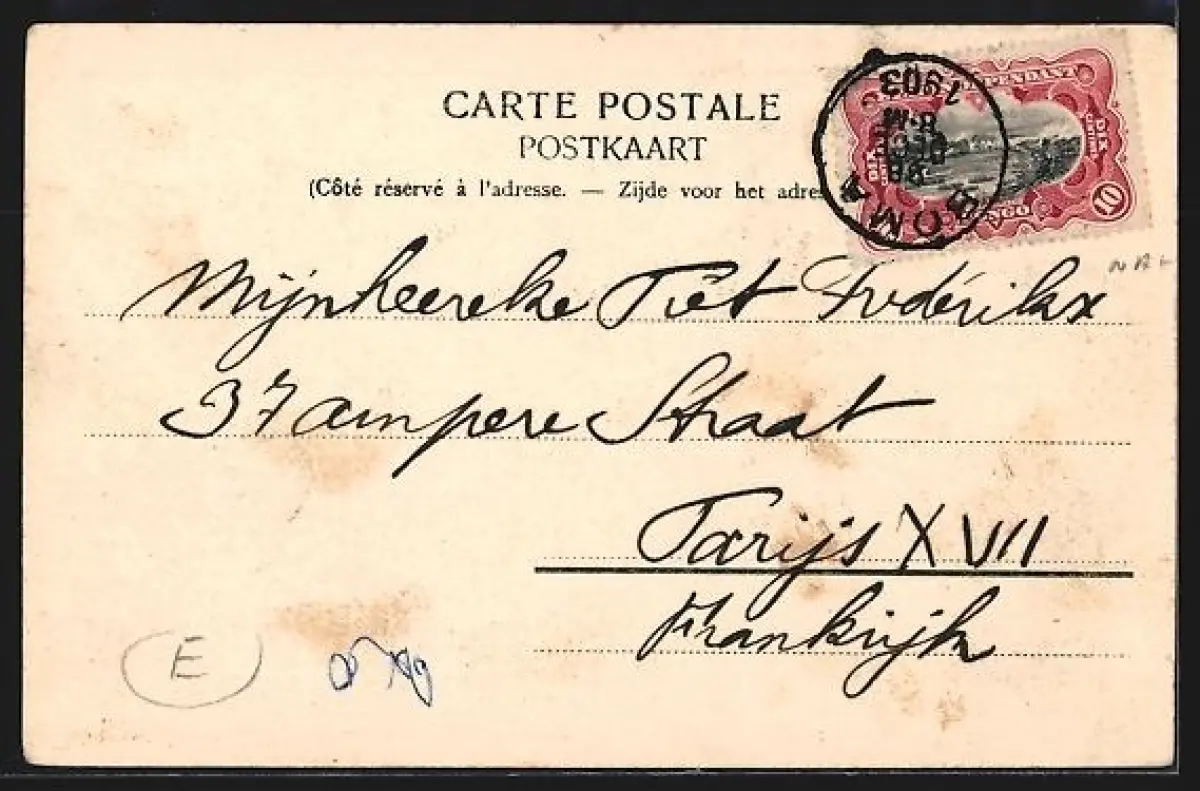 CARTE POSTALE
POSTKAART
(Côté réservé à l'adresse. — Zijde voor het adres
PENDANT
DIX
DIX
10
BOMA
DEC
8-M
1903
Mijnheereke Piet Fredérikx
37 ampere Straat
Parijs XVII
Frankrijk
E